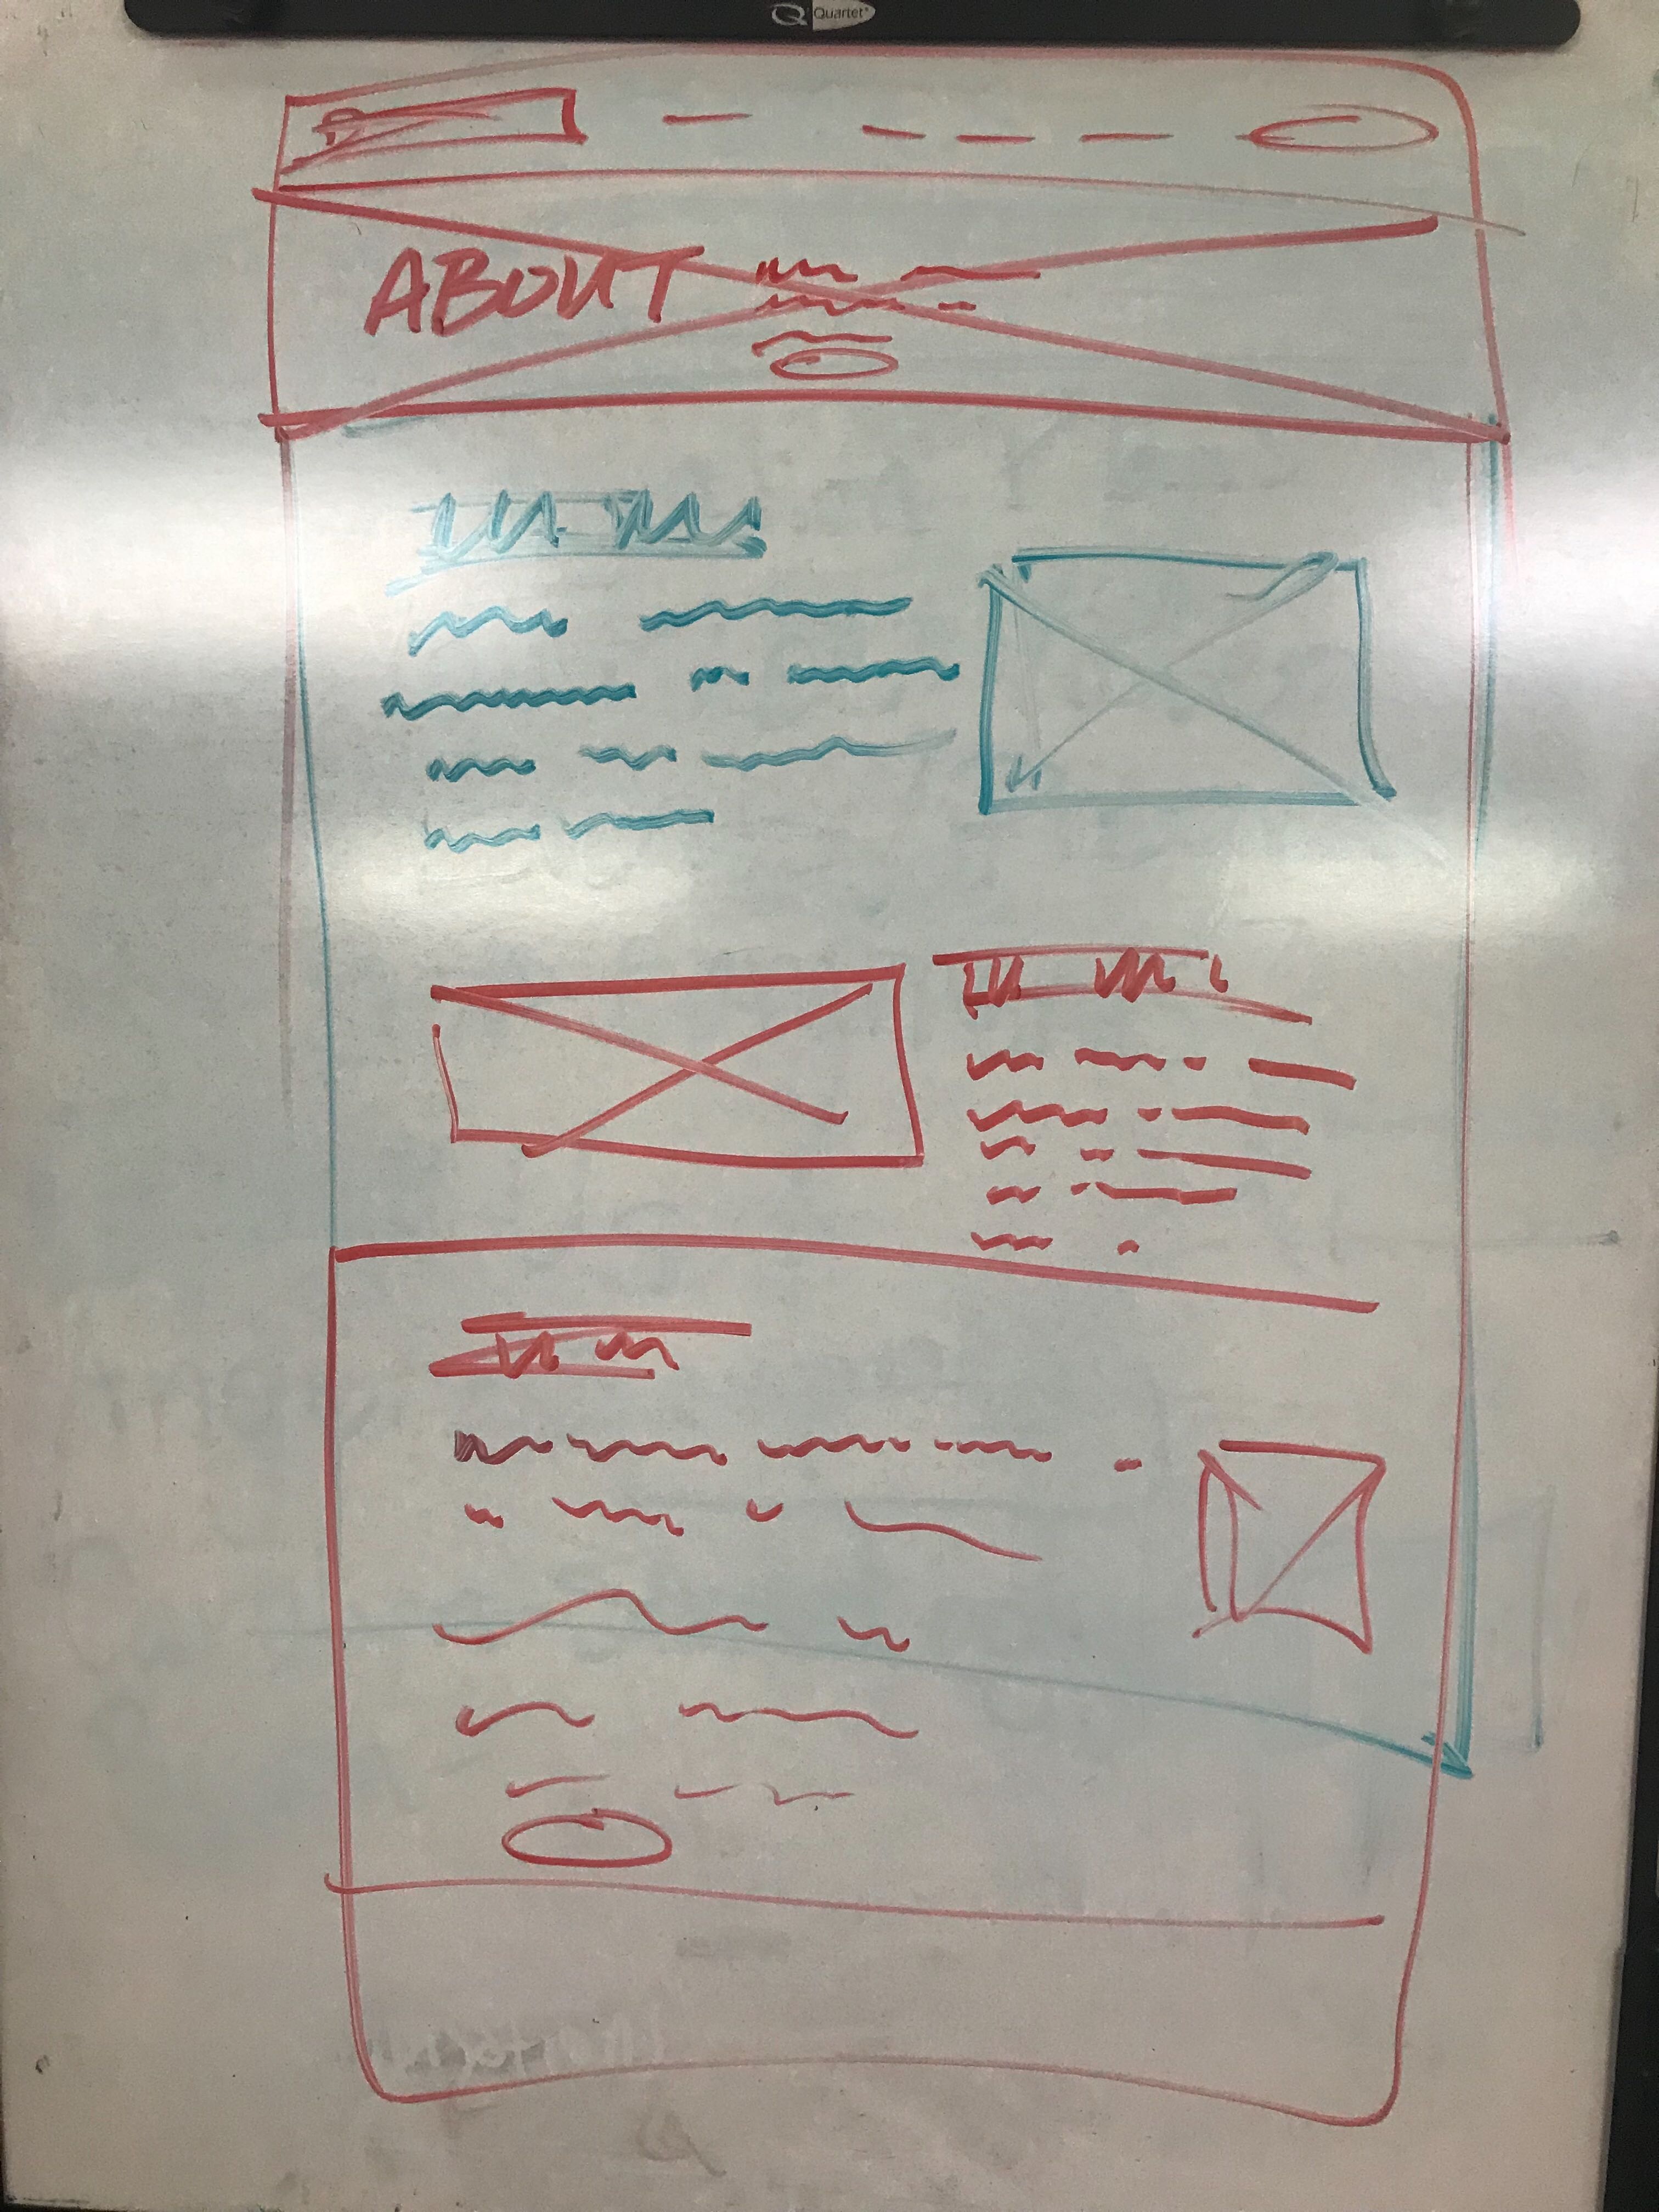 Quartet
ABOUT